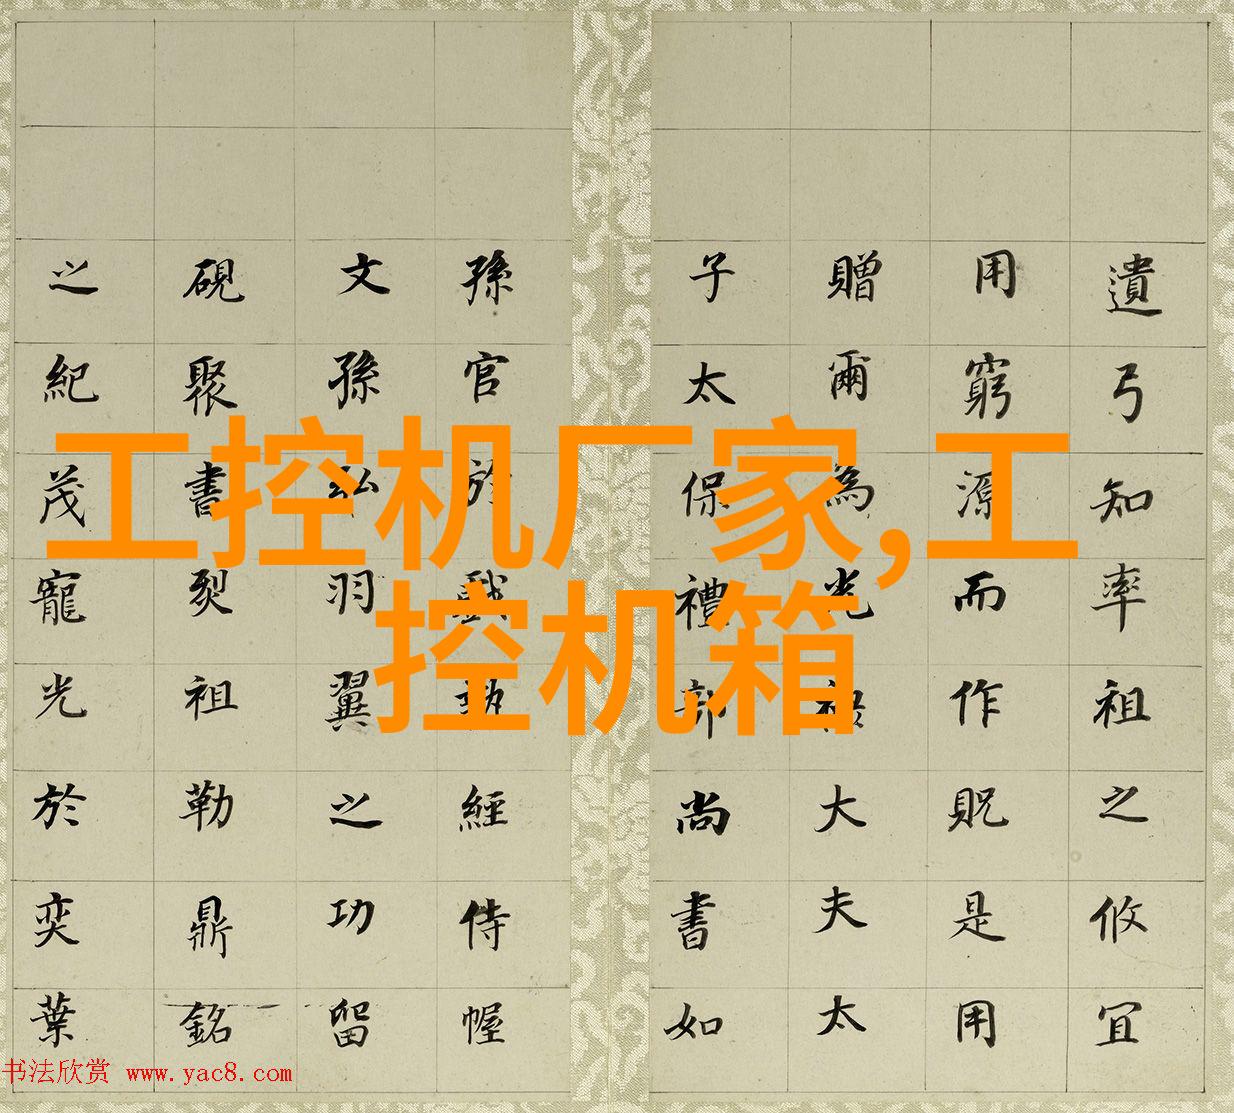 遺弓知率祖之攸宜
用窮源而作貺是用
贈爾為光祿大夫太
子太保禮部尚書如
孫官於戲經侍幄
文孫弘羽翼之功留
硯聚書烈祖勒鼎銘
之紀茂寵光於奕葉
工控机厂家,工
控机箱
书法欣赏 www.yac8.com